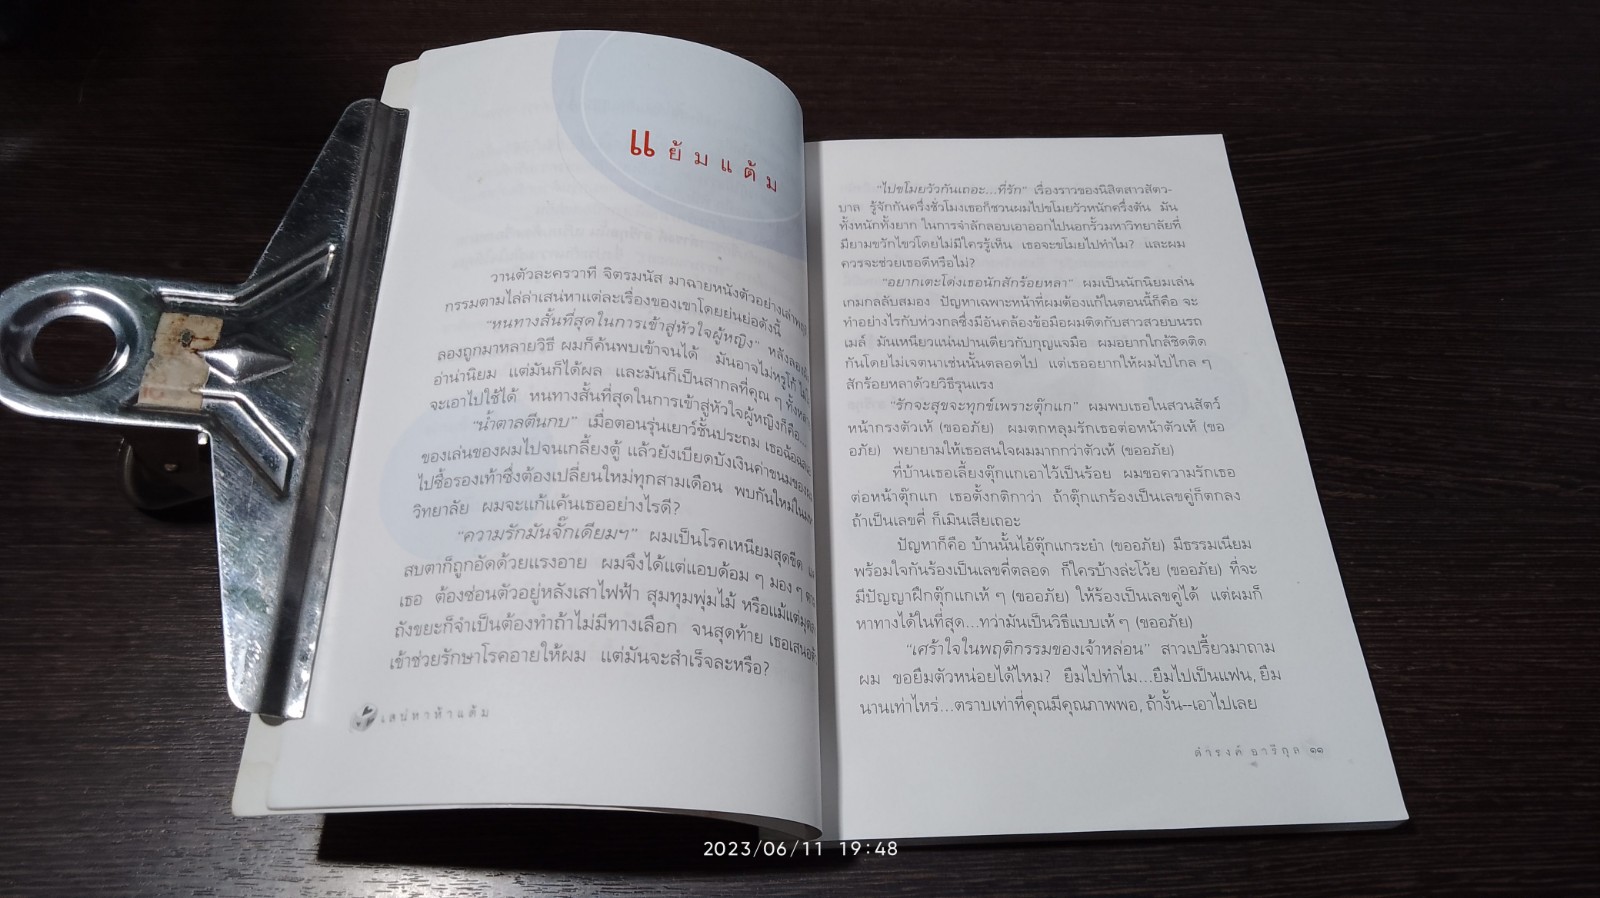 แย้มแต้ม
วานตัวละครวาที จิตรมนัส มาฉายหนังตัวอย่างเล่าพฤติ
กรรมตามไล่ล่าเสน่หาแต่ละเรื่องของเขาโดยย่นย่อดังนี้
"หนทางสั้นที่สุดในการเข้าสู่หัวใจผู้หญิง" หลังลอง
ลองถูกมาหลายวิธี ผมก็ค้นพบเข้าจนได้ มันอาจไม่หรูโก้
อ่าน่านิยม แต่มันก็ได้ผล และมันก็เป็นสากลที่คุณ ๆ ทั้งหลาย
จะเอาไปใช้ได้ หนทางสั้นที่สุดในการเข้าสู่หัวใจผู้หญิงก็คือ....
"น้ำตาลตีนกบ" เมื่อตอนรุ่นเยาว์ชั้นประถม เธอฉ้อฉล
ของเล่นของผมไปจนเกลี้ยงตู้ แล้วยังเบียดบังเงินค่าขนมของ
ไปซื้อรองเท้าซึ่งต้องเปลี่ยนใหม่ทุกสามเดือน พบกันใหม่ใน
วิทยาลัย ผมจะแก้แค้นเธออย่างไรดี?
"ความรักมันจั๊กเดียมฯ" ผมเป็นโรคเหนียมสุดขีด
สบตาก็ถูกอัดด้วยแรงอาย ผมจึงได้แต่แอบด้อม ๆ มอง ๆ
เธอ ต้องซ่อนตัวอยู่หลังเสาไฟฟ้า สุมทุมพุ่มไม้ หรือแม้แต่
ถังขยะก็จำเป็นต้องทำถ้าไม่มีทางเลือก จนสุดท้าย เธอเสนอตัว
เข้าช่วยรักษาโรคอายให้ผม แต่มันจะสำเร็จละหรือ?
เสน่หาห้าแต้ม
"ไปขโมยวัวกันเถอะ...ที่รัก" เรื่องราวของนิสิตสาวสัตว-
บาล รู้จักกันครึ่งชั่วโมงเธอก็ชวนผมไปขโมยวัวหนักครึ่งตัน มัน
ทั้งหนักทั้งยาก ในการจำลักลอบเอาออกไปนอกรั้วมหาวิทยาลัยที่
มียามขวักไขว่โดยไม่มีใครรู้เห็น เธอจะขโมยไปทำไม? และผม
ควรจะช่วยเธอดีหรือไม่?
"อยากเตะโด่งเธอนักสักร้อยหลา" ผมเป็นนักนิยมเล่น
เกมกลลับสมอง ปัญหาเฉพาะหน้าที่ผมต้องแก้ในตอนนี้ก็คือ จะ
ทำอย่างไรกับห่วงกลซึ่งมีอันคล้องข้อมือผมติดกับสาวสวยบนรถ
เมล์ มันเหนียวแน่นปานเดียวกับกุญแจมือ ผมอยากใกล้ชิดติด
กันโดยไม่เจตนาเช่นนั้นตลอดไป แต่เธออยากให้ผมไปไกล ๆ
สักร้อยหลาด้วยวิธีรุนแรง
"รักจะสุขจะทุกข์เพราะตุ๊กแก" ผมพบเธอในสวนสัตว์
หน้ากรงตัวเห้ (ขออภัย) ผมตกหลุมรักเธอต่อหน้าตัวเห้ (ขอ
อภัย) พยายามให้เธอสนใจผมมากกว่าตัวเห้ (ขออภัย)
ที่บ้านเธอเลี้ยงตุ๊กแกเอาไว้เป็นร้อย ผมขอความรักเธอ
ต่อหน้าตุ๊กแก เธอตั้งกติกาว่า ถ้าตุ๊กแกร้องเป็นเลขคู่ก็ตกลง
ถ้าเป็นเลขคี่ ก็เมินเสียเถอะ
ปัญหาก็คือ บ้านนั้นไอ้ตุ๊กแกระยำ (ขออภัย) มีธรรมเนียม
พร้อมใจกันร้องเป็นเลขคี่ตลอด ก็ใครบ้างล่ะโว้ย (ขออภัย) ที่จะ
มีปัญญาฝึกตุ๊กแกเห้ ๆ (ขออภัย) ให้ร้องเป็นเลขคู่ได้ แต่ผมก็
หาทางได้ในที่สุด...ทว่ามันเป็นวิธีแบบเห้ ๆ (ขออภัย)
"เศร้าใจในพฤติกรรมของเจ้าหล่อน" สาวเปรี้ยวมาถาม
ผม ขอยืมตัวหน่อยได้ไหม? ยืมไปทำไม...ยืมไปเป็นแฟน, ยืม
นานเท่าไหร่...ตราบเท่าที่คุณมีคุณภาพพอ, ถ้างั้น--เอาไปเลย
ดำรงค์ อารีกุล ๑๑
2023/06/11 19:48